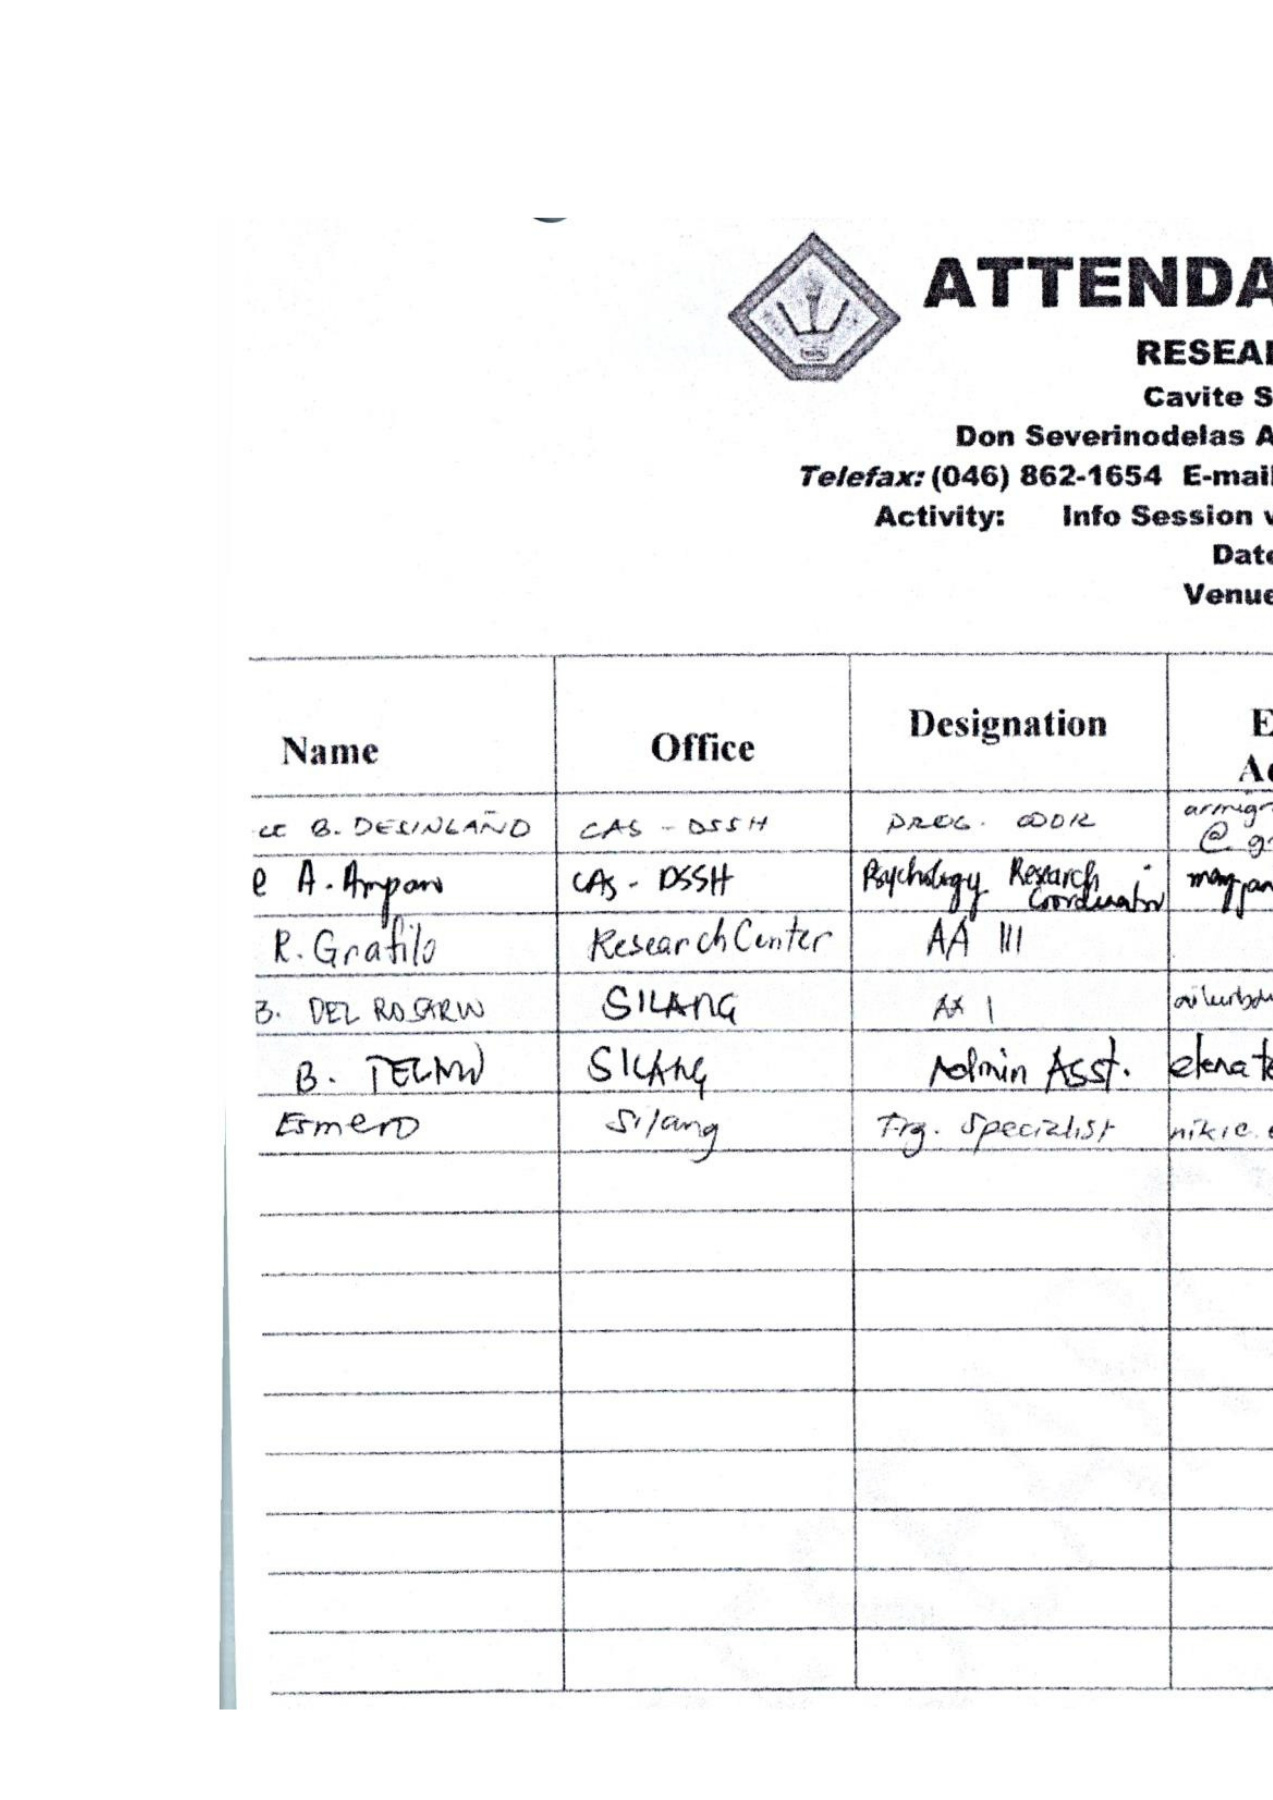 ATTENDA
RESEAR
Cavite S
Don Severinodelas A
Telefax: (046) 862-1654 E-mail
Activity: Info Session
Date
Venue
Name Office Designation E
Ad
B. DESINGAÑO CAS - DSSH PROG. COOR armigr
@ g
e A. Amparo CAS - DSSH Psychology Research
Coordinator
R. Grafilo Research Center AA III
B. DEL ROSARIO SILANG AA I
B. SILANG Admin Asst. elena
Esmero Silang Trg. Specialist nikie.